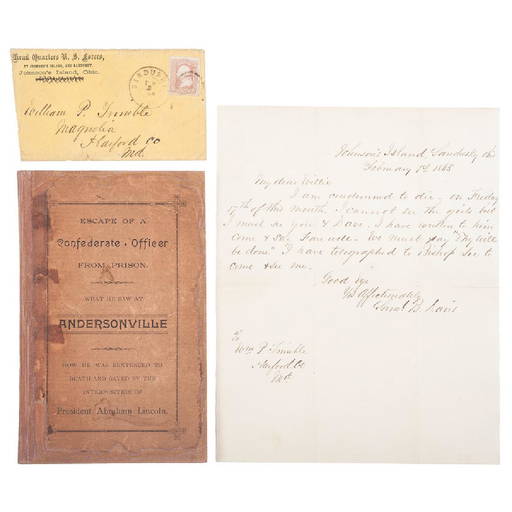 Head Quarters U. S. Forces,
AT JOHNSON'S ISLAND, AND SANDUSKY.
Johnson's Island, Ohio.
SANDUSKY
William P. Trimble
Magnolia
Harford Co
Md.
ESCAPE OF A
Confederate Officer
FROM PRISON.
WHAT HE SAW AT
ANDERSONVILLE
HOW HE WAS SENTENCED TO
DEATH AND SAVED BY THE
INTERPOSITION OF
President Abraham Lincoln.
Johnson's Island Sandusky
February 1865
My dear Willie
I am condemned to die on Friday
17th of this month. I cannot see the girls but
I must see you & Dave. I have written to him
come & see. Farewell. We must say "Thy will be
done". I have telegraphed to Bishop Lee to
come & see me.
Good bye
Yrs Affectionately
Saml. B. Davis
To
Wm. P. Trimble
Harford Co
Md